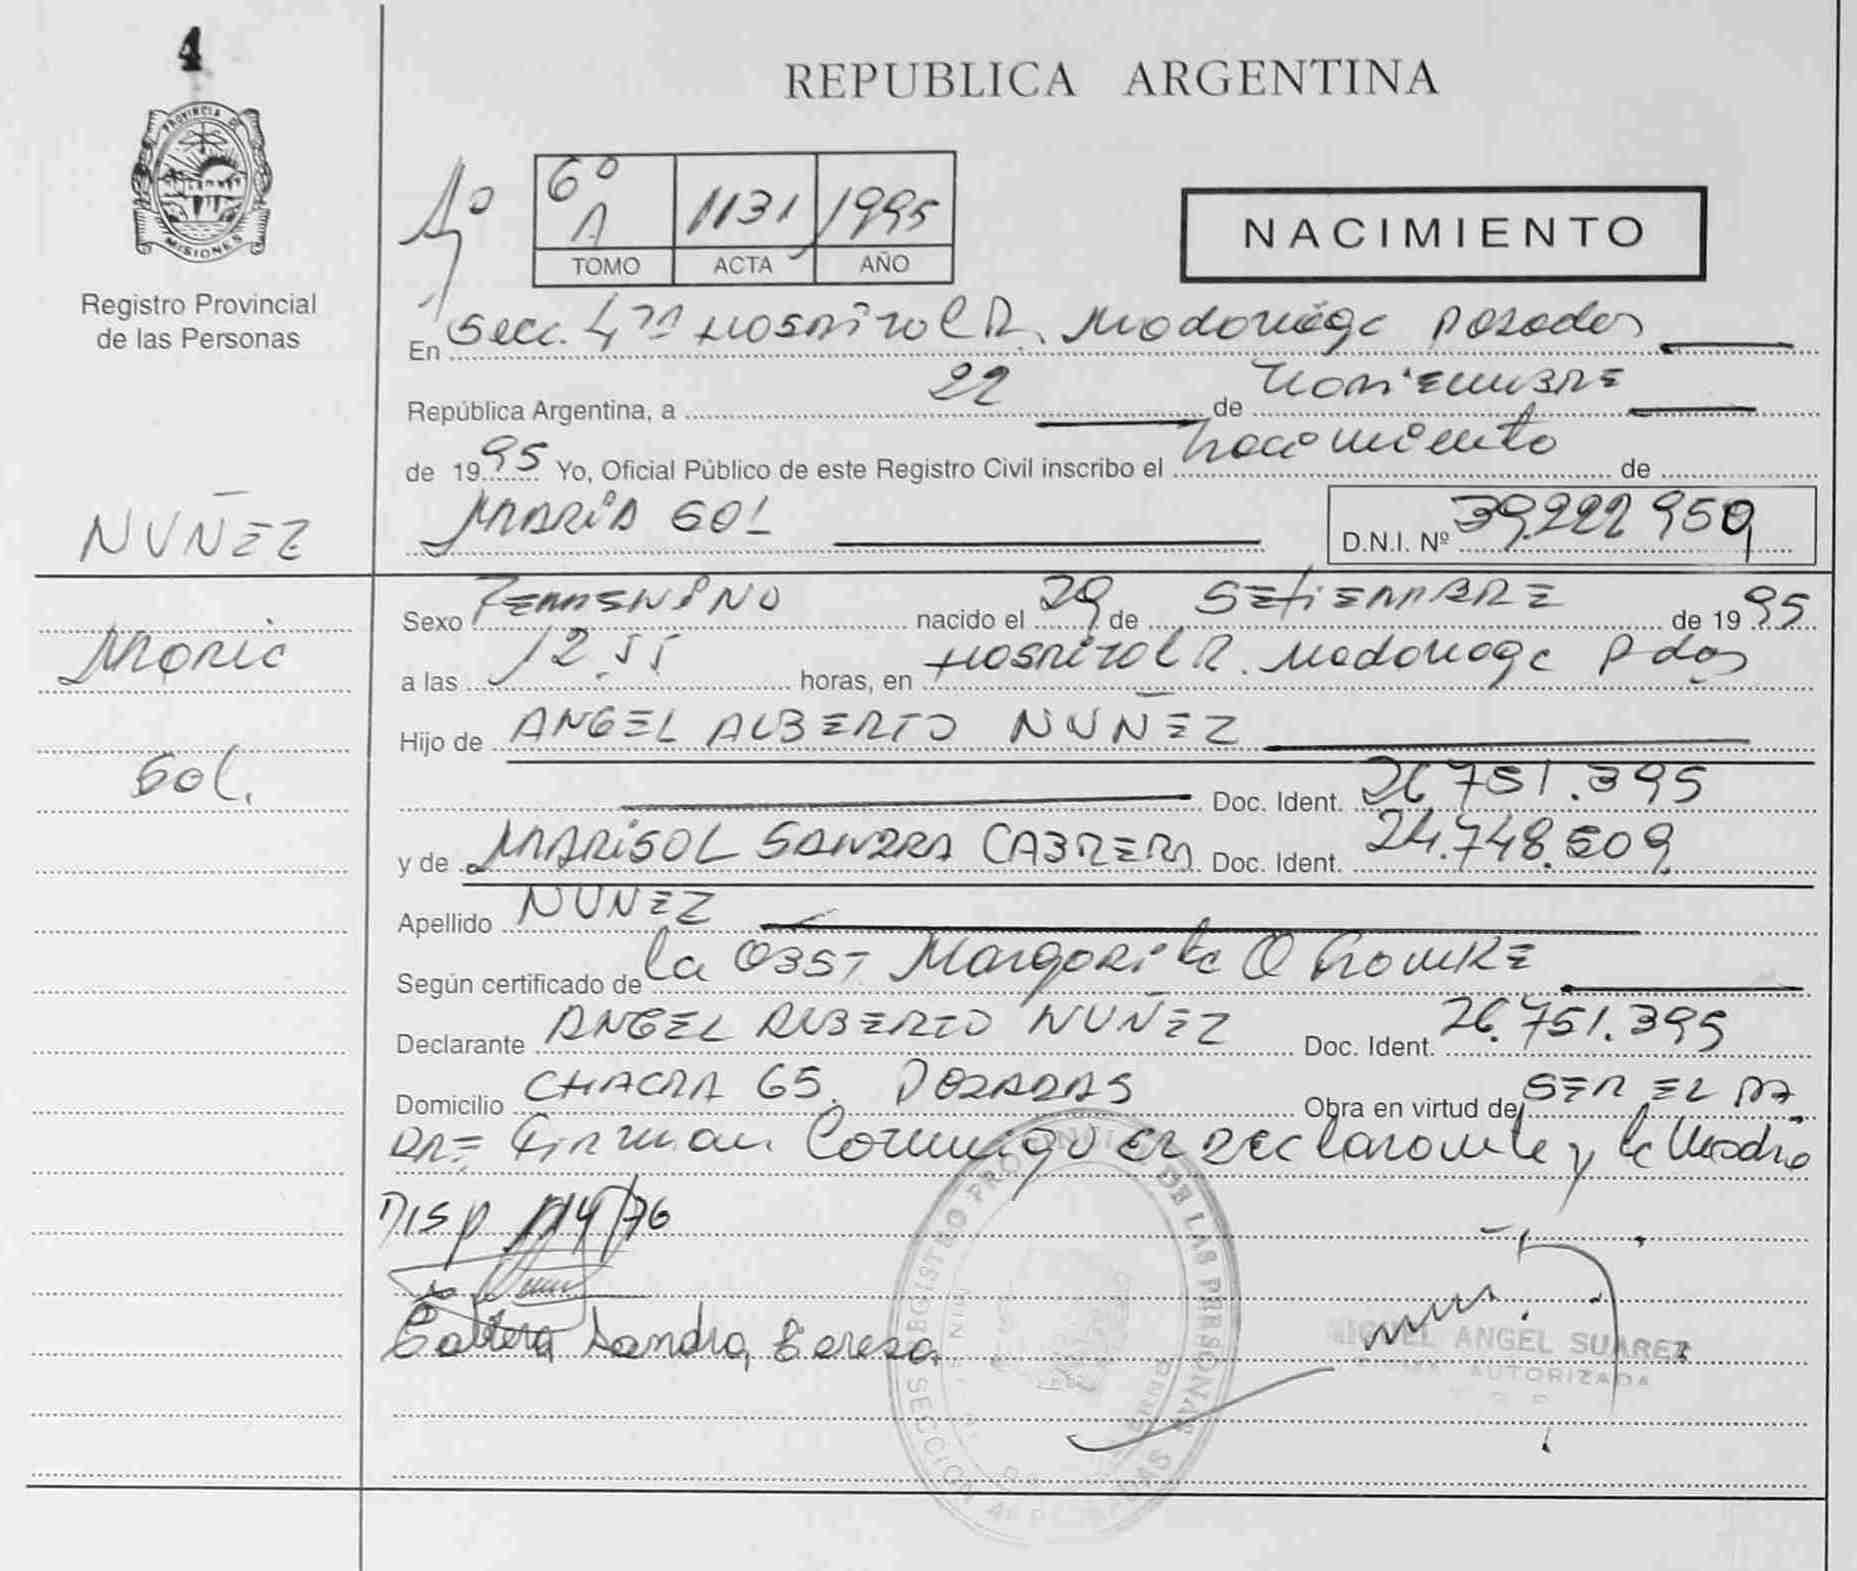 4
PROVINCIA DE
MISIONES
Registro Provincial
de las Personas
REPUBLICA ARGENTINA
6º A 1131 1995
TOMO ACTA AÑO
NACIMIENTO
En Secc. 4ta Hospital R. Madariaga Posadas
República Argentina, a 22 de Noviembre
de 1995 Yo, Oficial Público de este Registro Civil inscribo el nacimiento de
NUÑEZ
MARIA SOL D.N.I. Nº 39.222.950
Maria
Sol.
Sexo FEMENINO nacido el 29 de SETIEMBRE de 1995
a las 12.55 horas, en Hospital R. Madariaga Pdas
Hijo de ANGEL ALBERTO NUÑEZ
Doc. Ident. 26.751.395
y de MARISOL SANDRA CABRERA Doc. Ident. 24.748.509
Apellido NUÑEZ
Según certificado de la OBST Margarita
Declarante ANGEL ALBERTO NUÑEZ Doc. Ident. 26.751.395
Domicilio CHACRA 65. POSADAS Obra en virtud de SER EL PA
DRE Firman Conmigo el DEClarante y la Madre
DISP 114/76
Cabrera Sandra
REGISTRO PROVINCIAL DE LAS PERSONAS
SECCION
MIGUEL ANGEL SUAREZ
FIRMA AUTORIZADA